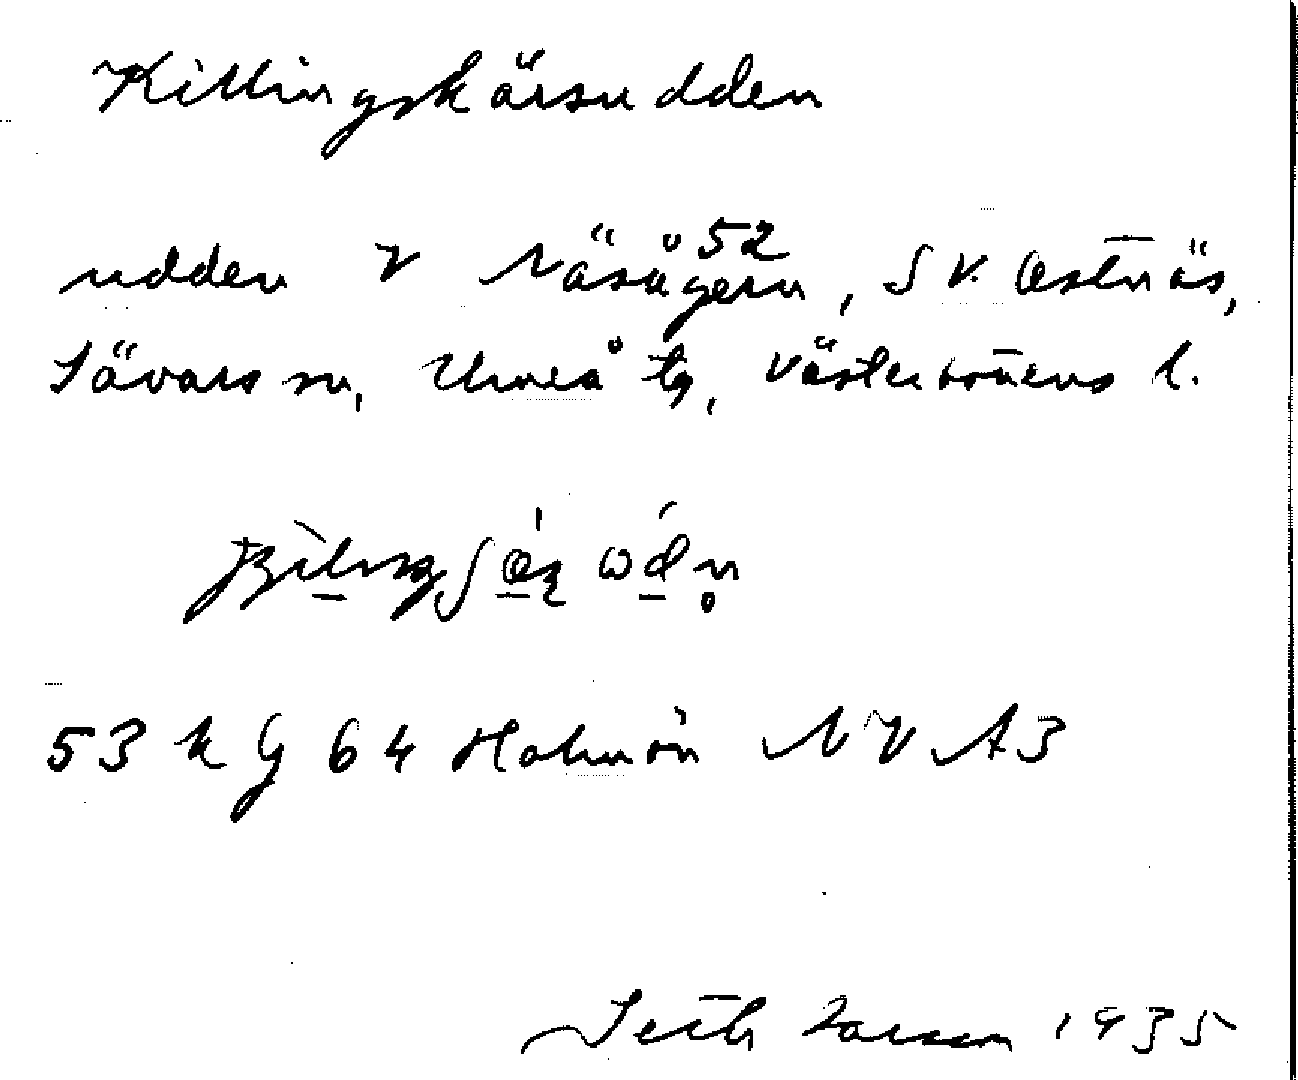 Killingskärsudden
udden V Näsågern 52, SV. Ostnäs,
Sävars sn, Umeå tg, Västerbottens l.
53 k G 64 Holmön NV A3
Seth Larsson 1935